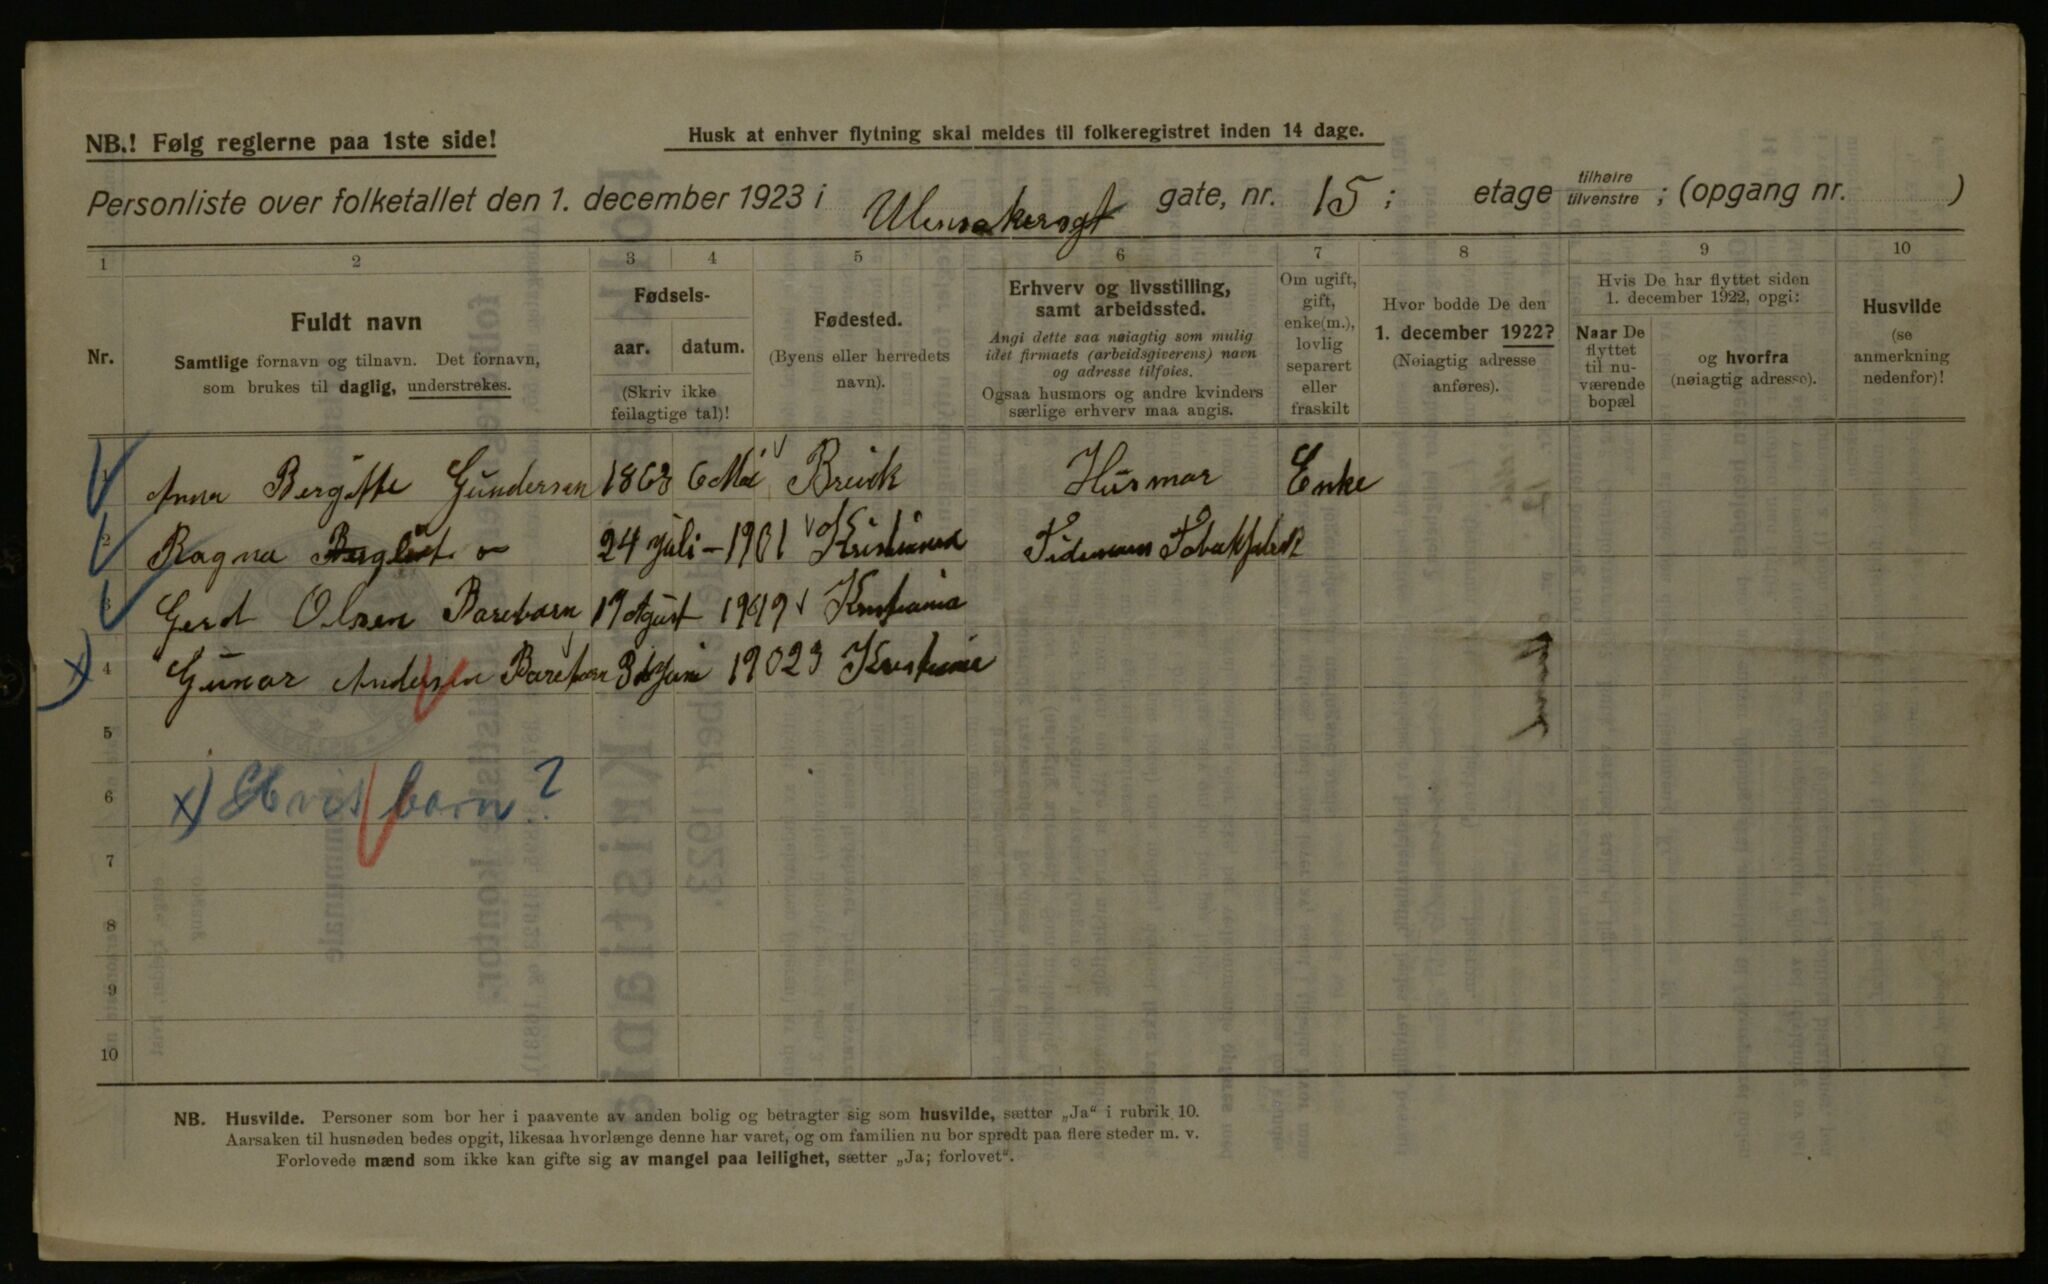 NB.! Følg reglerne paa 1ste side!
Husk at enhver flytning skal meldes til folkeregistret inden 14 dage.
Personliste over folketallet den 1. december 1923 i Ulensakersgt gate, nr. 15; etage tilhøire tilvenstre ; (opgang nr. )
1 2 3 4 5 6 7 8 9 10
Nr.
Fuldt navn
Samtlige fornavn og tilnavn. Det fornavn,
som brukes til daglig, understrekes.
Fødsels-
aar. datum.
(Skriv ikke
feilagtige tal)!
Fødested.
(Byens eller herredets
navn).
Erhverv og livsstilling,
samt arbeidssted.
Angi dette saa nøiagtig som mulig
idet firmaets (arbeidsgiverens) navn
og adresse tilføies.
Ogsaa husmors og andre kvinders
særlige erhverv maa angis.
Om ugift,
gift,
enke(m.),
lovlig
separert
eller
fraskilt
Hvor bodde De den
1. december 1922?
(Nøiagtig adresse
anføres).
Hvis De har flyttet siden
1. december 1922, opgi:
Naar De
flyttet
til nu-
værende
bopæl
og hvorfra
(nøiagtig adresse).
Husvilde
(se
anmerkning
nedenfor)!
1 Anna Bergitte Gundersen 1863 6 Mai Brevik Husmor Enke
2 Ragna 24 juli - 1901 Kristiania Tidemans Tobakfabrik
3 Gerd Olsen Barebarn 17 Agust 1919 Kristiania
4 Gunar Andersen Barebarn Juni 19023 Kristiania
5
6 x) Hvis barn?
7
8
9
10
NB. Husvilde. Personer som bor her i paavente av anden bolig og betragter sig som husvilde, sætter „Ja" i rubrik 10.
Aarsaken til husnøden bedes opgit, likesaa hvorlænge denne har varet, og om familien nu bor spredt paa flere steder m. v.
Forlovede mænd som ikke kan gifte sig av mangel paa leilighet, sætter „Ja; forlovet".